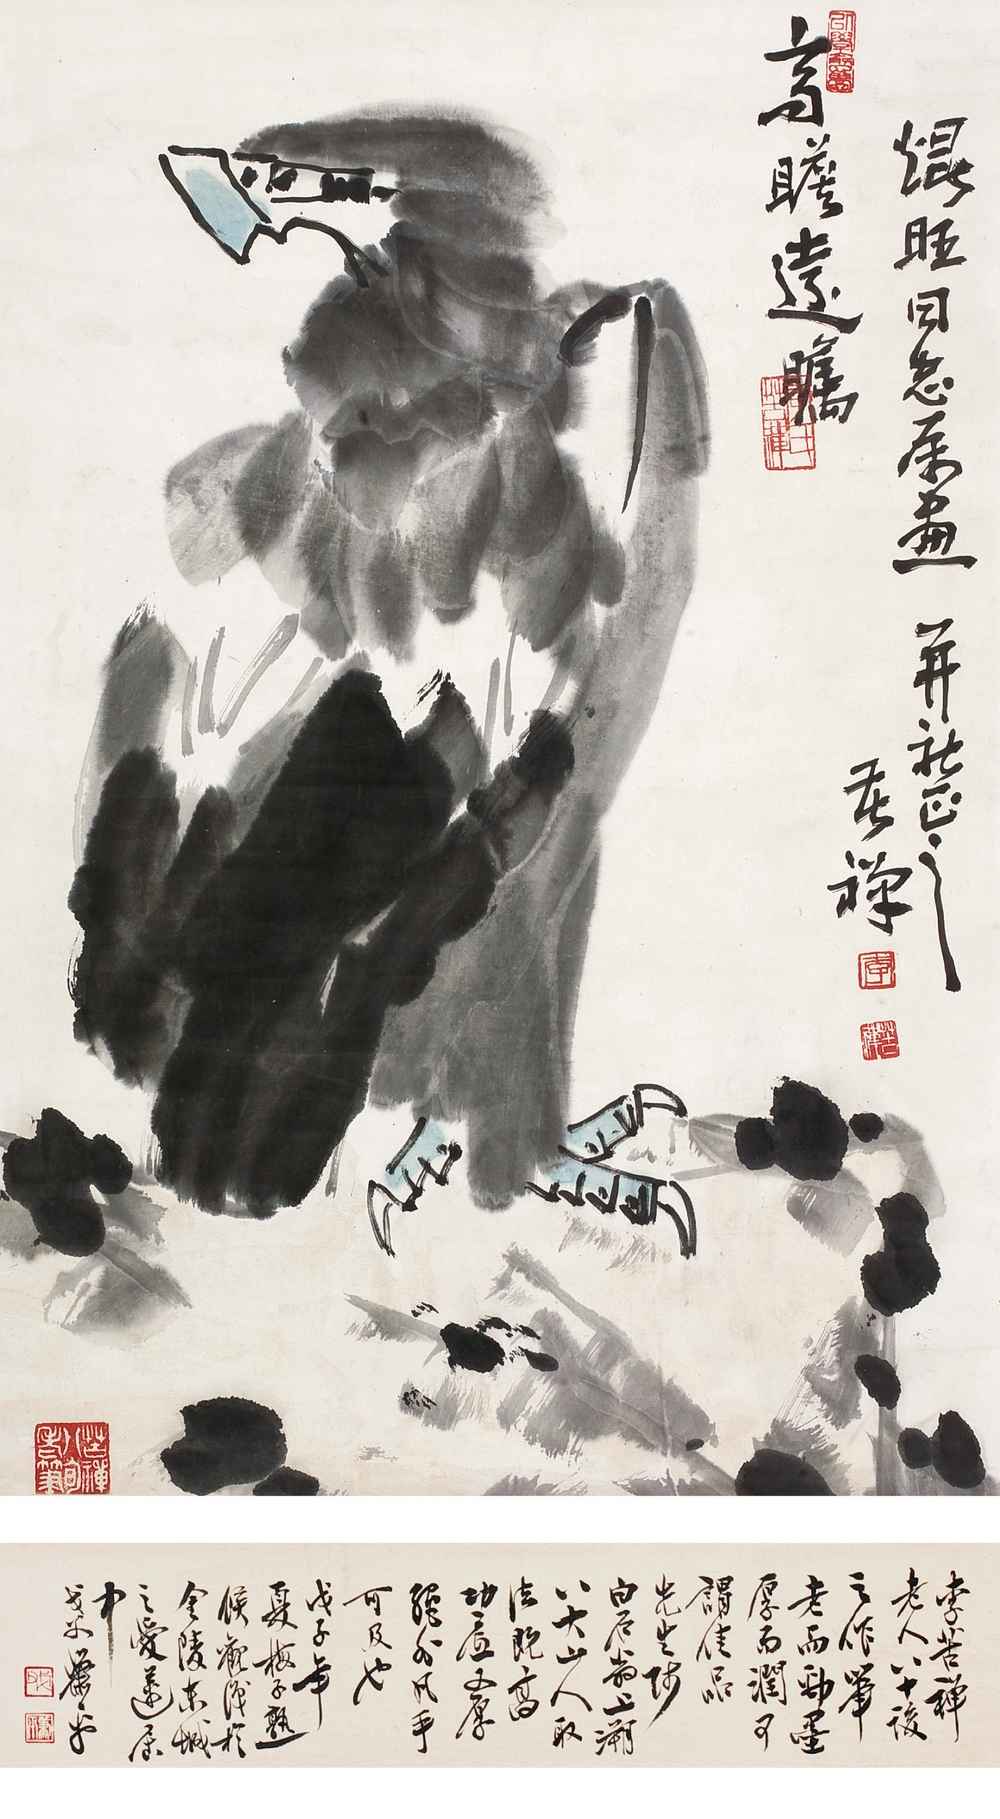 高瞻远瞩
焜旺同志属画 并社正之
苦禅
李
苦禅
李苦禅
老人八十后
之作笔
老而劲墨
厚而润可
谓佳品
先生师
白石翁上溯
八大山人取
法既高
功底又厚
可及也
戊子年
夏梅子熟
候观识于
金陵东城
之爱莲居
中